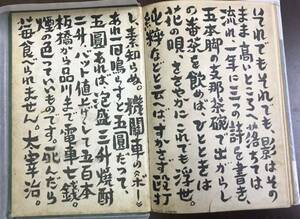 いてれでもそれでも、影はその
まま高いところへ落ちては
流れ、一年に三つの詩を書き、
五本脚の支那茶碗で出がらし
の番茶を飲めばひとときは
花の唄、ささやかにこれでも浮世。
純粋などと云へばすかさず段打
し、素知らぬ。機関車のヽボーヽ
あれ一回鳴らすと五圓だって、
五圓あれば、泡盛三升焼酎
二升、バット値上げして五百本
板橋から品川まで電車七銭。
煙の色っていいものです。死んだら
苺食べられません。太宰治。